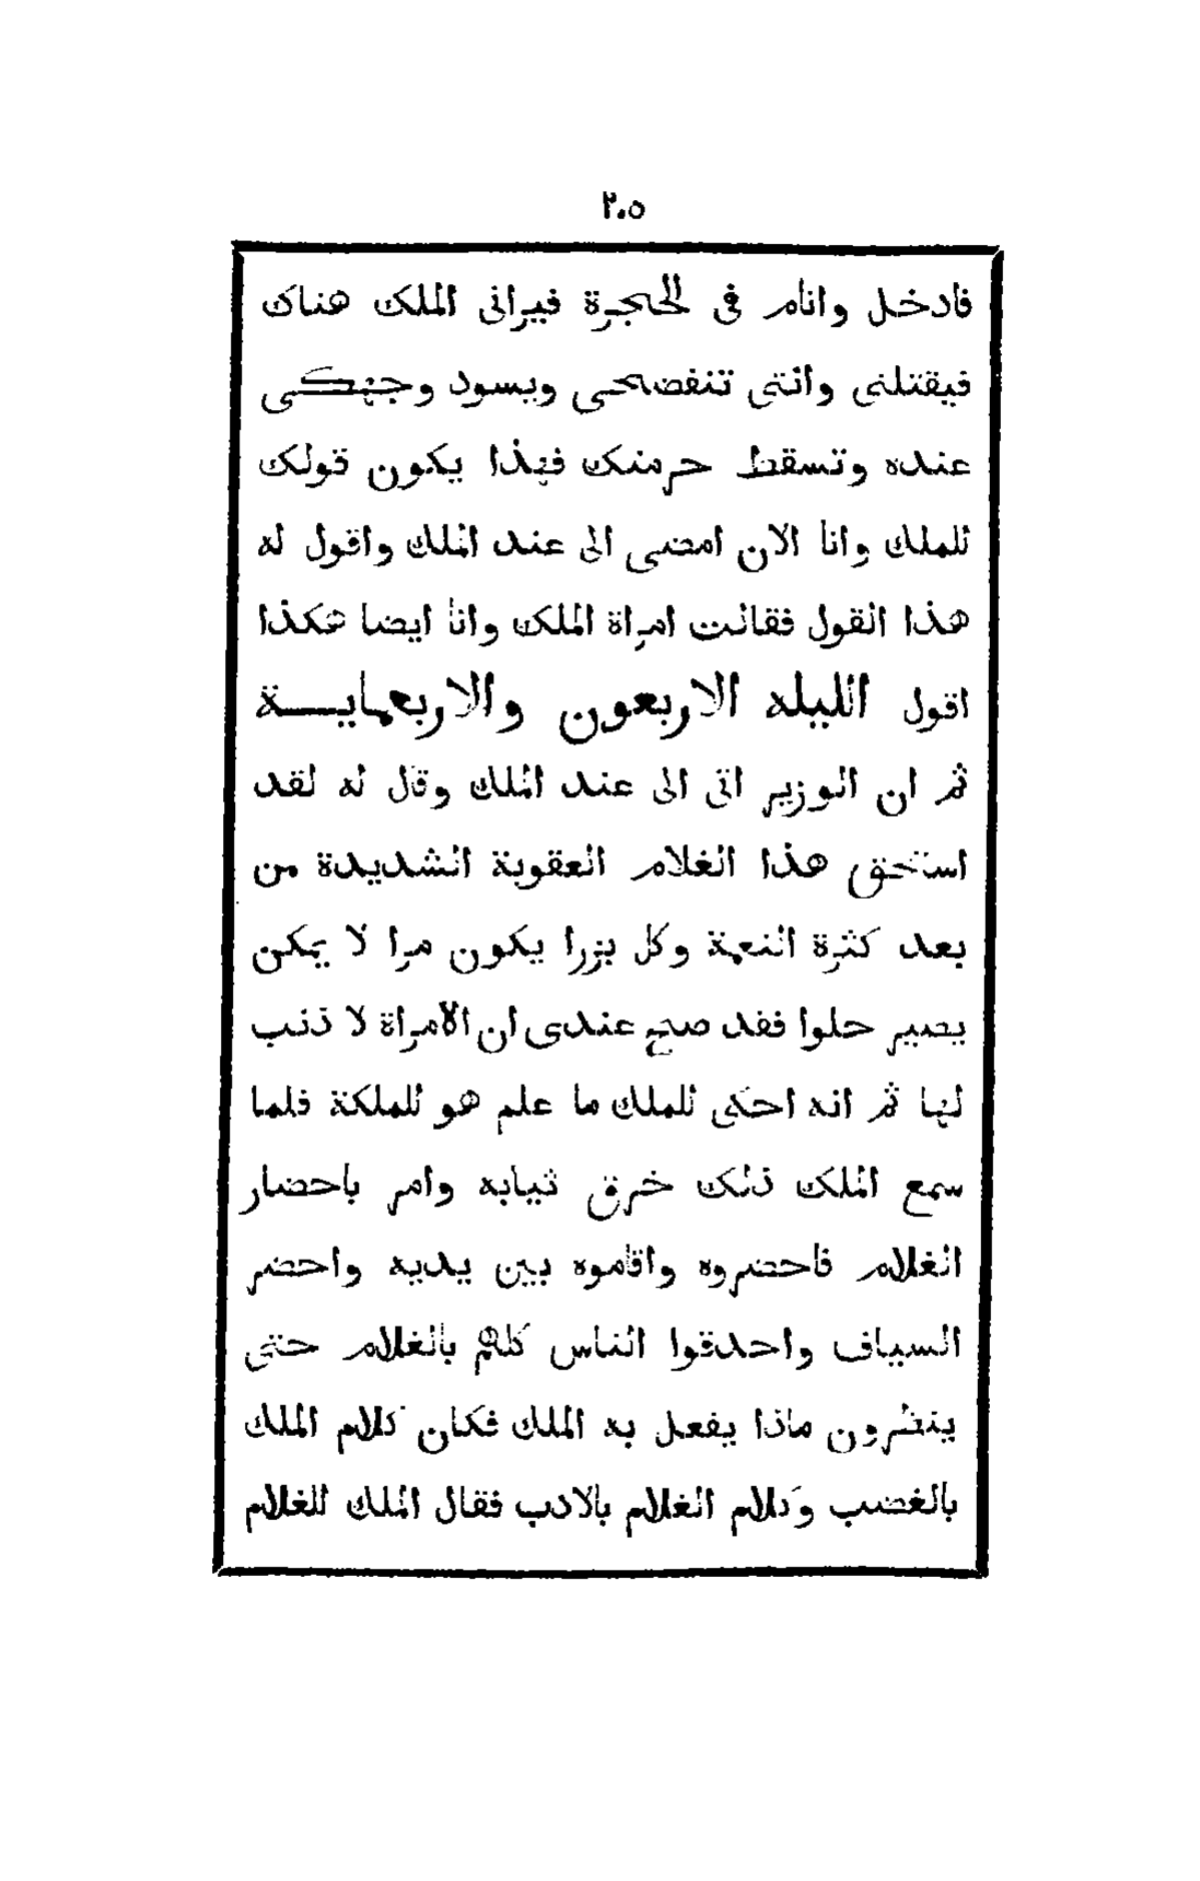 ٢٠٥
فادخل وانام فى الحجرة فيرانى الملك هناك
فيقتلنى وانتى تنفضحى ويسود وجهكى
عنده وتسقط حرمتك فهذا يكون قولك
للملك وانا الان امضى الى عند الملك واقول له
هذا القول فقالت امراة الملك وانا ايضا هكذا
اقول الليله الاربعون والاربعماية
ثم ان الوزير اتى الى عند الملك وقال له لقد
استحق هذا الغلام العقوبة الشديدة من
بعد كثرة النعمة وكل بزرا يكون مرا لا يمكن
يصير حلوا فقد صح عندى ان الامراة لا ذنب
لها ثم انه احكى للملك ما علم هو للملكة فلما
سمع الملك ذلك خرق ثيابه وامر باحضار
الغلام فاحضروه واقاموه بين يديه واحضر
السياف واحدقوا الناس كلهم بالغلام حتى
ينظرون ماذا يفعل به الملك فكان كلام الملك
بالغضب وكلام الغلام بالادب فقال الملك للغلام